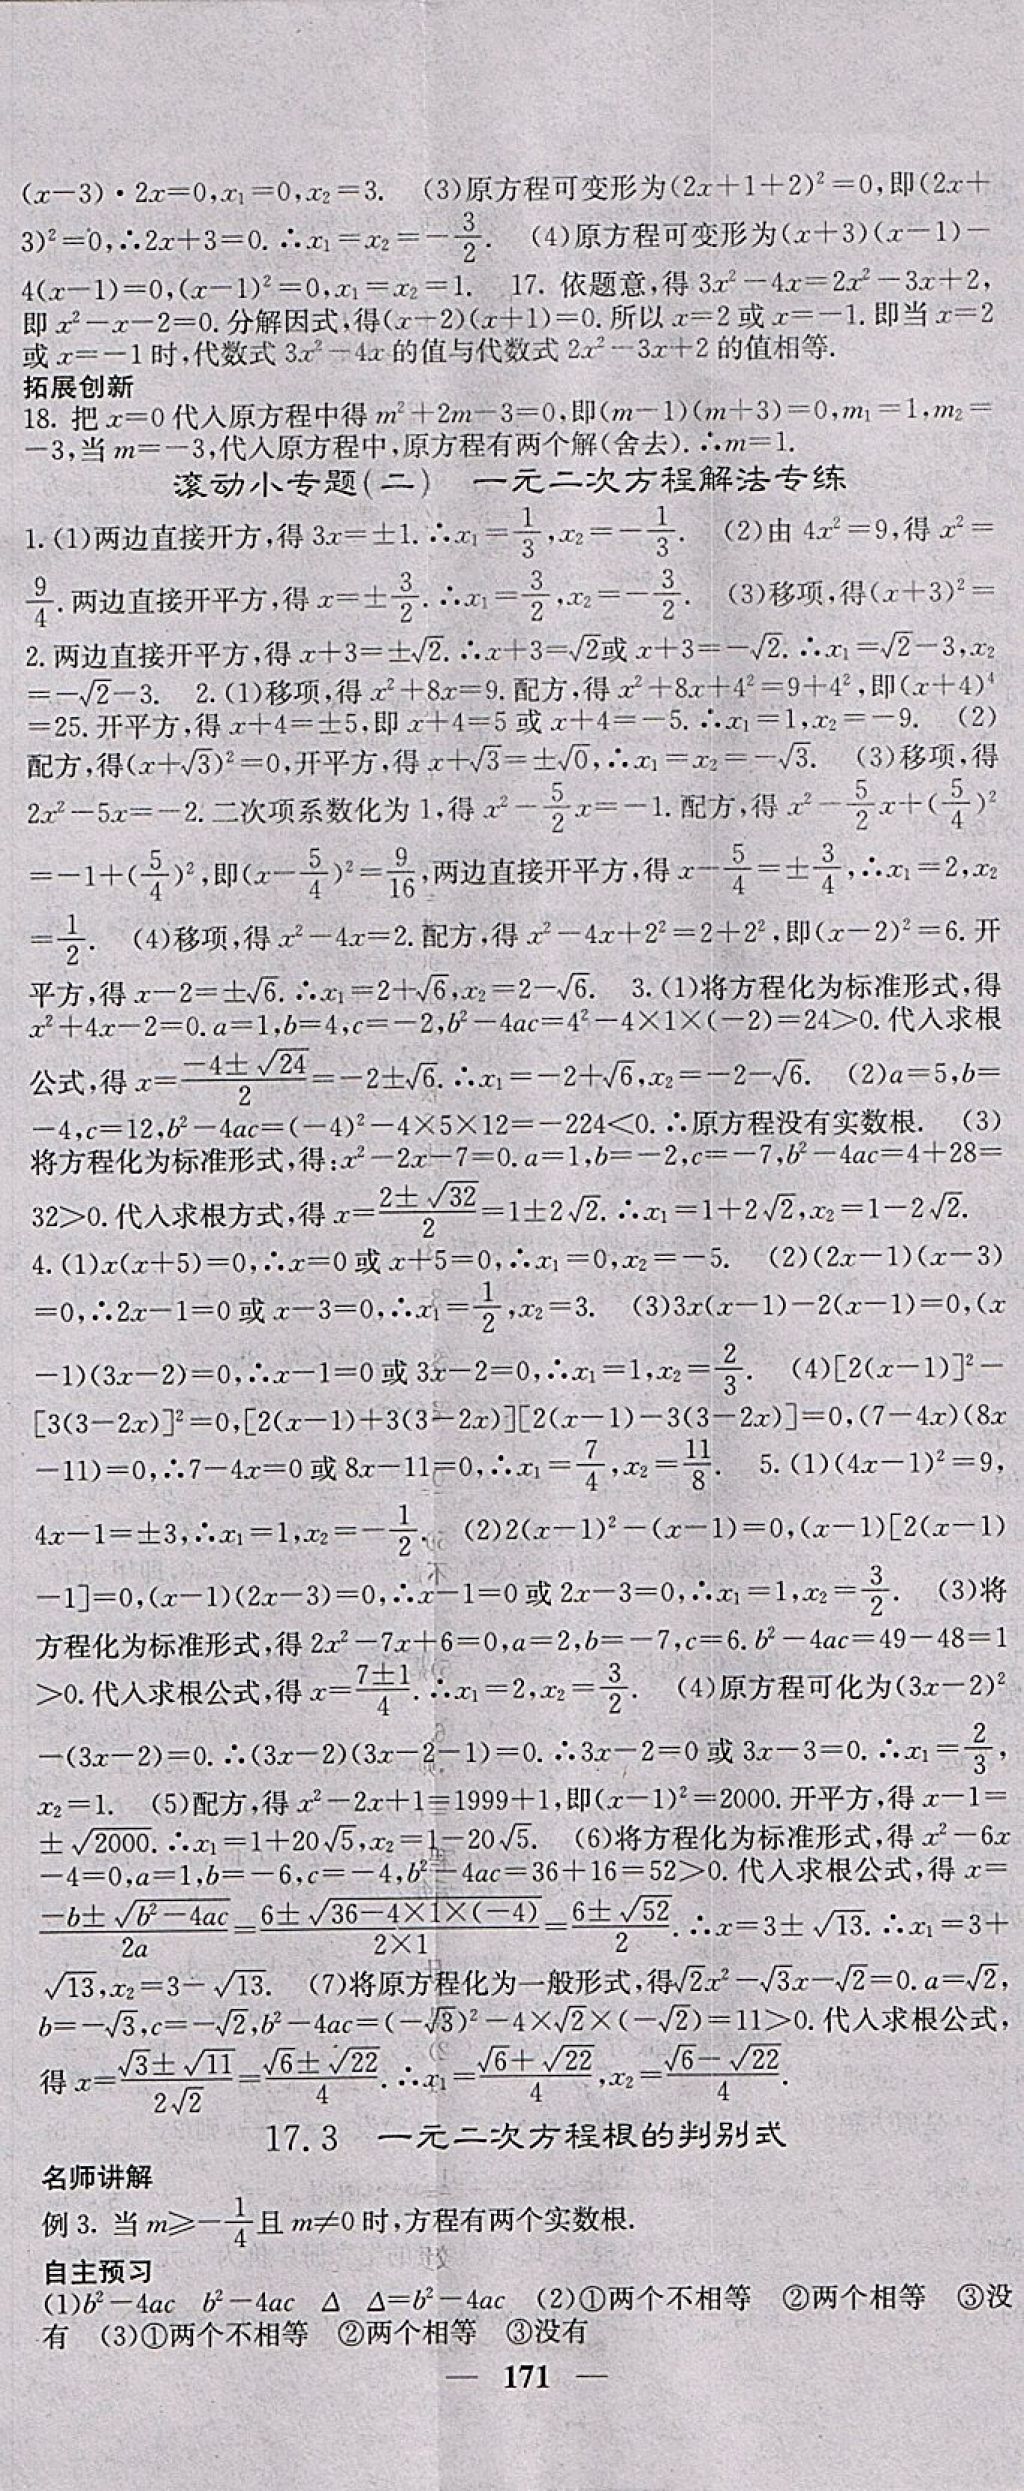 (x-3)·2x=0,x₁=0,x₂=3. (3)原方程可变形为(2x+1+2)²=0,即(2x+
3)²=0,∴2x+3=0.∴x₁=x₂=-3/2. (4)原方程可变形为(x+3)(x-1)-
4(x-1)=0,(x-1)²=0,x₁=x₂=1. 17. 依题意,得3x²-4x=2x²-3x+2,
即x²-x-2=0.分解因式,得(x-2)(x+1)=0.所以x=2或x=-1.即当x=2
或x=-1时,代数式3x²-4x的值与代数式2x²-3x+2的值相等.
拓展创新
18. 把x=0代入原方程中得m²+2m-3=0,即(m-1)(m+3)=0,m₁=1,m₂=
-3,当m=-3,代入原方程中,原方程有两个解(舍去).∴m=1.
滚动小专题(二) 一元二次方程解法专练
1.(1)两边直接开方,得3x=±1.∴x₁=1/3,x₂=-1/3. (2)由4x²=9,得x²=
9/4.两边直接开平方,得x=±3/2.∴x₁=3/2,x₂=-3/2. (3)移项,得(x+3)²=
2.两边直接开平方,得x+3=±√2.∴x+3=√2或x+3=-√2.∴x₁=√2-3,x₂
=-√2-3. 2.(1)移项,得x²+8x=9.配方,得x²+8x+4²=9+4²,即(x+4)⁴
=25.开平方,得x+4=±5,即x+4=5或x+4=-5.∴x₁=1,x₂=-9. (2)
配方,得(x+√3)²=0,开平方,得x+√3=±√0,∴x₁=x₂=-√3. (3)移项,得
2x²-5x=-2.二次项系数化为1,得x²-5/2x=-1.配方,得x²-5/2x+(5/4)²
=-1+(5/4)²,即(x-5/4)²=9/16,两边直接开平方,得x-5/4=±3/4,∴x₁=2,x₂
=1/2. (4)移项,得x²-4x=2.配方,得x²-4x+2²=2+2²,即(x-2)²=6.开
平方,得x-2=±√6.∴x₁=2+√6,x₂=2-√6. 3.(1)将方程化为标准形式,得
x²+4x-2=0.a=1,b=4,c=-2,b²-4ac=4²-4×1×(-2)=24>0.代入求根
公式,得x=(-4±√24)/2=-2±√6.∴x₁=-2+√6,x₂=-2-√6. (2)a=5,b=
-4,c=12,b²-4ac=(-4)²-4×5×12=-224<0.∴原方程没有实数根. (3)
将方程化为标准形式,得:x²-2x-7=0.a=1,b=-2,c=-7,b²-4ac=4+28=
32>0.代入求根方式,得x=(2±√32)/2=1±2√2.∴x₁=1+2√2,x₂=1-2√2.
4.(1)x(x+5)=0,∴x=0或x+5=0,∴x₁=0,x₂=-5. (2)(2x-1)(x-3)
=0,∴2x-1=0或x-3=0,∴x₁=1/2,x₂=3. (3)3x(x-1)-2(x-1)=0,(x
-1)(3x-2)=0,∴x-1=0或3x-2=0,∴x₁=1,x₂=2/3. (4)[2(x-1)]²-
[3(3-2x)]²=0,[2(x-1)+3(3-2x)][2(x-1)-3(3-2x)]=0,(7-4x)(8x
-11)=0,∴7-4x=0或8x-11=0,∴x₁=7/4,x₂=11/8. 5.(1)(4x-1)²=9,
4x-1=±3,∴x₁=1,x₂=-1/2. (2)2(x-1)²-(x-1)=0,(x-1)[2(x-1)
-1]=0,(x-1)(2x-3)=0,∴x-1=0或2x-3=0,∴x₁=1,x₂=3/2. (3)将
方程化为标准形式,得2x²-7x+6=0,a=2,b=-7,c=6.b²-4ac=49-48=1
>0.代入求根公式,得x=(7±1)/4.∴x₁=2,x₂=3/2. (4)原方程可化为(3x-2)²
-(3x-2)=0.∴(3x-2)(3x-2-1)=0.∴3x-2=0或3x-3=0.∴x₁=2/3,
x₂=1. (5)配方,得x²-2x+1=1999+1,即(x-1)²=2000.开平方,得x-1=
±√2000.∴x₁=1+20√5,x₂=1-20√5. (6)将方程化为标准形式,得x²-6x
-4=0,a=1,b=-6,c=-4,b²-4ac=36+16=52>0.代入求根公式,得x=
(-b±√(b²-4ac))/2a=(6±√(36-4×1×(-4)))/(2×1)=(6±√52)/2.∴x=3±√13.∴x₁=3+
√13,x₂=3-√13. (7)将原方程化为一般形式,得√2x²-√3x-√2=0.a=√2,
b=-√3,c=-√2,b²-4ac=(-√3)²-4×√2×(-√2)=11>0.代入求根公式,
得x=(√3±√11)/2√2=(√6±√22)/4.∴x₁=(√6+√22)/4,x₂=(√6-√22)/4.
17.3 一元二次方程根的判别式
名师讲解
例3. 当m≥-1/4且m≠0时,方程有两个实数根.
自主预习
(1)b²-4ac b²-4ac Δ Δ=b²-4ac (2)①两个不相等 ②两个相等 ③没
有 (3)①两个不相等 ②两个相等 ③没有
— 171 —